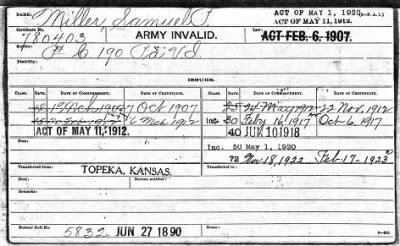 NAME: Miller Samuel F. ACT OF MAY 1, 1920
ACT OF MAY 11, 1912.
Certificate No. 780403 ARMY INVALID. ACT FEB. 6, 1907.
C 190 Pa Vol
ISSUES.
CLASS. DATE OF COMMENCEMENT. DATE OF CERTIFICATE. CLASS. DATE OF COMMENCEMENT. DATE OF CERTIFICATE.
15 1907 Oct 1907 25 24 May 1912 22 Nov. 1912
1912 Inc 30 Feby 16, 1917 Oct 6, 1917
ACT OF MAY 11, 1912. 40 JUN 10 1918
Inc. 50 May 1, 1920
72 Nov 18, 1922 Feb-17-1923
TOPEKA, KANSAS.
Transferred from
Remarks:
Bureau Roll No. 5832 JUN 27 1890